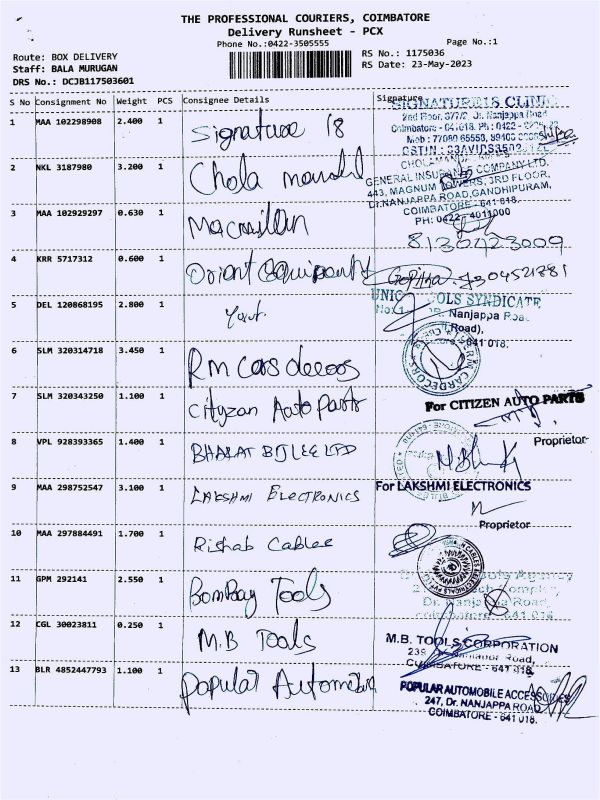 THE PROFESSIONAL COURIERS, COIMBATORE
Delivery Runsheet - PCX
Phone No.:0422-3505555
Page No.:1
Route: BOX DELIVERY
RS No.: 1175036
Staff: BALA MURUGAN
RS Date: 23-May-2023
DRS No.: DCJB117503601
S No Consignment No Weight PCS Consignee Details Signature
1 MAA 102298908 2.400 1 Signature 18
SIGNATURE18 CLINIC
2nd Floor, Nanjappa Road
Coimbatore - 641018. Ph : 0422 -
Mob : 77080 65558,
GSTIN :
2 NKL 3187980 3.200 1 Chola mandal
CHOLAMANDALAM
GENERAL INSURANCE COMPANY LTD.
443, MAGNUM TOWERS, 3RD FLOOR,
Dr.NANJAPPA ROAD, GANDHIPURAM,
COIMBATORE - 641 018.
PH: 0422 - 4011000
3 MAA 102929297 0.630 1 Macmillan
8130423009
4 KRR 5717312 0.600 1 Orient Equipments
5 DEL 120868195 2.800 1
TOOLS SYNDICATE
Nanjappa Road
Road),
641 018.
6 SLM 320314718 3.450 1 RM Cars decors
RM CARDECORS
7 SLM 320343250 1.100 1 Cityzan Auto Parts
For CITIZEN AUTO PARTS
Proprietor
8 VPL 928393365 1.400 1 BHARAT BIJLEE LTD
9 MAA 298752547 3.100 1 LAKSHMI ELECTRONICS
For LAKSHMI ELECTRONICS
Proprietor
10 MAA 297884491 1.700 1 Rishab Cables
11 GPM 292141 2.550 1 Bombay Tools
Tools Agency
Dr. Nanjappa Road,
Coimbatore - 641 018
12 CGL 30023811 0.250 1 M.B Tools
M.B. TOOLS CORPORATION
239, Dr. Nanjappa Road,
COIMBATORE - 641 018.
13 BLR 4852447793 1.100 1 Popular Automobile
POPULAR AUTOMOBILE ACCESSORIES
247, Dr. NANJAPPA ROAD
COIMBATORE - 641 018.